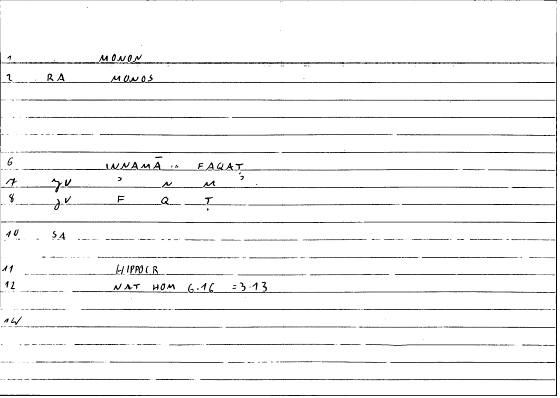 1 MONON
2 RA MONOS
6 INNAMĀ .. FAQAṬ
7 gV ʾ N M ʾ
8 gV F Q Ṭ
10 SA
11 HIPPOCR
12 NAT HOM 6.16 =3.13
14